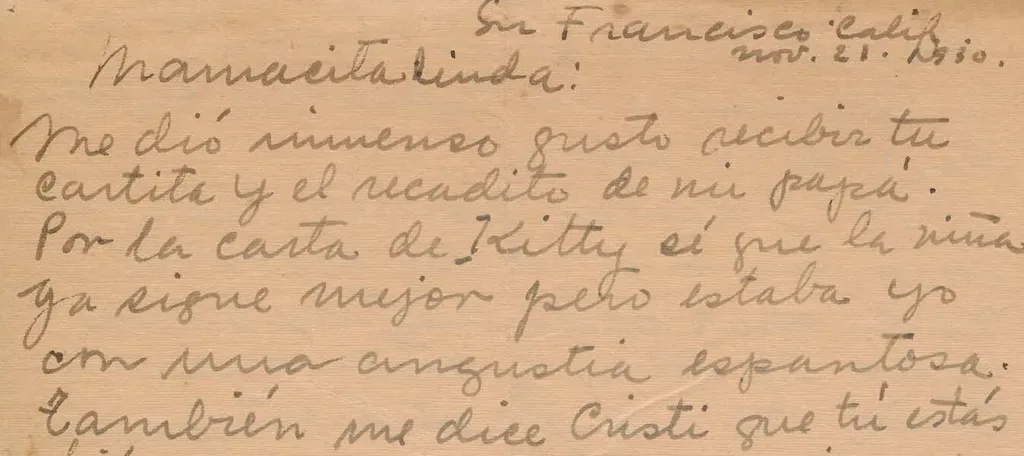 San Francisco Calif
nov. 21. 1930.
Mamacita linda:
Me dió inmenso gusto recibir tu
cartita y el recadito de mi papá.
Por la carta de Kitty sé que la niña
ya sigue mejor pero estaba yo
con una angustia espantosa.
También me dice Cristi que tú estás